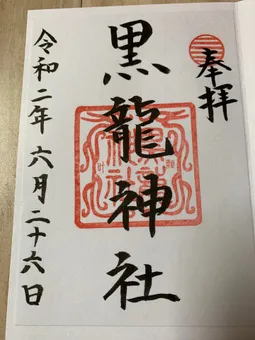 奉拝
黒龍神社
令和二年六月二十六日